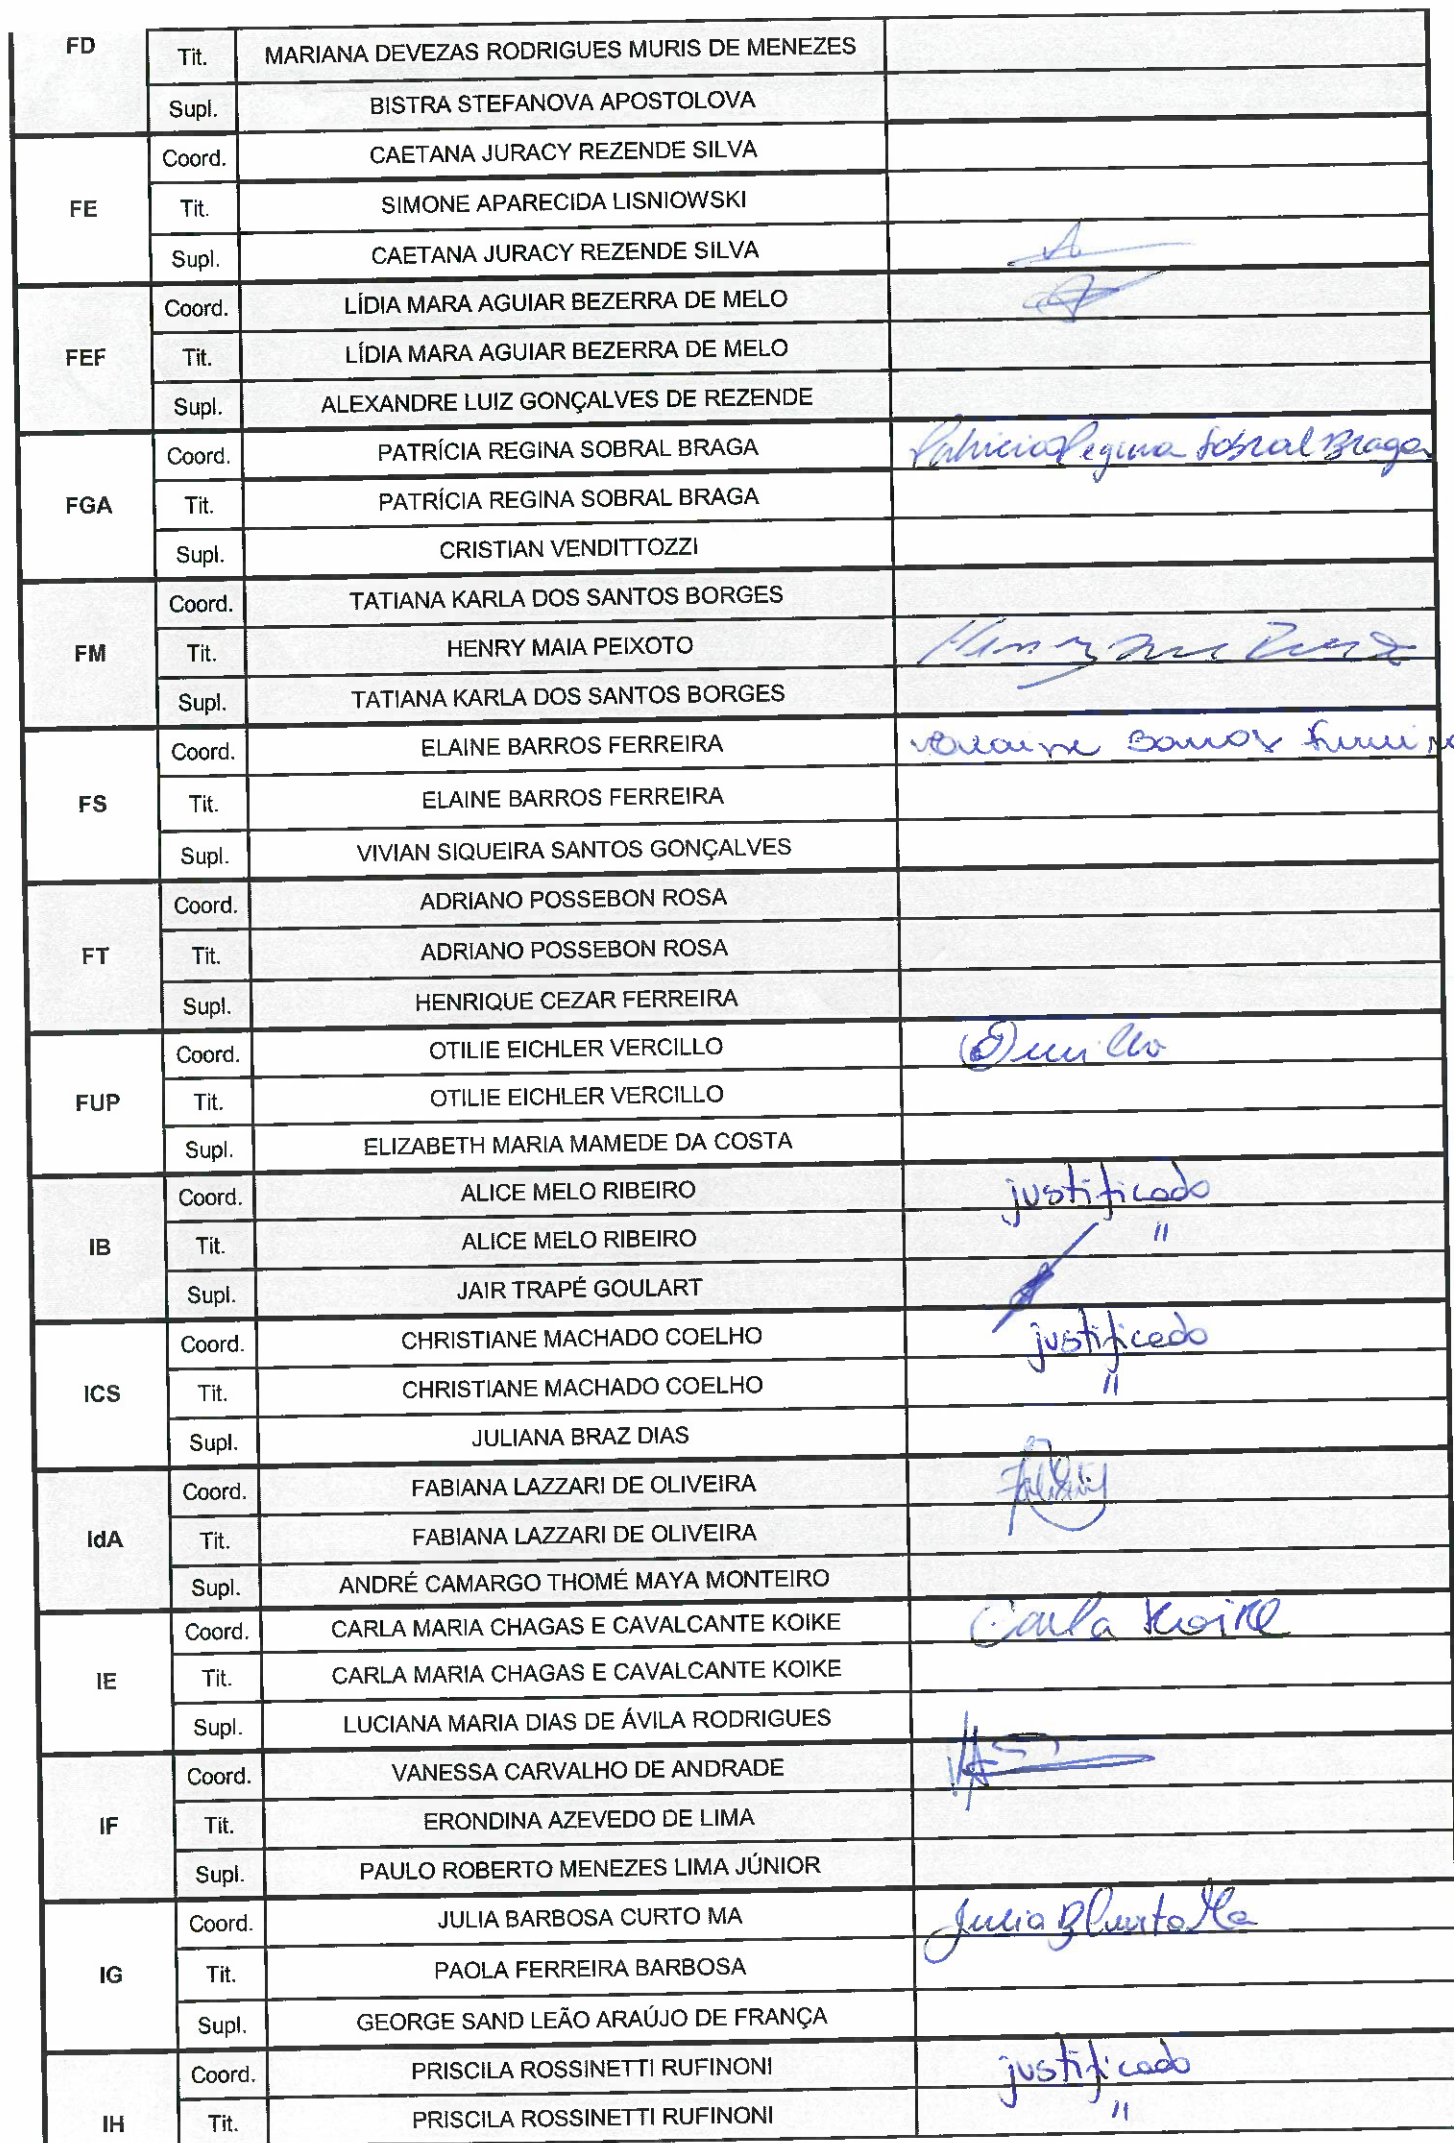 FD Tit. MARIANA DEVEZAS RODRIGUES MURIS DE MENEZES
Supl. BISTRA STEFANOVA APOSTOLOVA
Coord. CAETANA JURACY REZENDE SILVA
FE Tit. SIMONE APARECIDA LISNIOWSKI
Supl. CAETANA JURACY REZENDE SILVA
Coord. LÍDIA MARA AGUIAR BEZERRA DE MELO
FEF Tit. LÍDIA MARA AGUIAR BEZERRA DE MELO
Supl. ALEXANDRE LUIZ GONÇALVES DE REZENDE
Coord. PATRÍCIA REGINA SOBRAL BRAGA Patricia Regina Sobral Braga
FGA Tit. PATRÍCIA REGINA SOBRAL BRAGA
Supl. CRISTIAN VENDITTOZZI
Coord. TATIANA KARLA DOS SANTOS BORGES
FM Tit. HENRY MAIA PEIXOTO Henry
Supl. TATIANA KARLA DOS SANTOS BORGES
Coord. ELAINE BARROS FERREIRA Elaine Barros Ferreira
FS Tit. ELAINE BARROS FERREIRA
Supl. VIVIAN SIQUEIRA SANTOS GONÇALVES
Coord. ADRIANO POSSEBON ROSA
FT Tit. ADRIANO POSSEBON ROSA
Supl. HENRIQUE CEZAR FERREIRA
Coord. OTILIE EICHLER VERCILLO
FUP Tit. OTILIE EICHLER VERCILLO
Supl. ELIZABETH MARIA MAMEDE DA COSTA
Coord. ALICE MELO RIBEIRO justificado
IB Tit. ALICE MELO RIBEIRO "
Supl. JAIR TRAPÉ GOULART
Coord. CHRISTIANE MACHADO COELHO justificado
ICS Tit. CHRISTIANE MACHADO COELHO "
Supl. JULIANA BRAZ DIAS
Coord. FABIANA LAZZARI DE OLIVEIRA
IdA Tit. FABIANA LAZZARI DE OLIVEIRA
Supl. ANDRÉ CAMARGO THOMÉ MAYA MONTEIRO
Coord. CARLA MARIA CHAGAS E CAVALCANTE KOIKE Carla Koike
IE Tit. CARLA MARIA CHAGAS E CAVALCANTE KOIKE
Supl. LUCIANA MARIA DIAS DE ÁVILA RODRIGUES
Coord. VANESSA CARVALHO DE ANDRADE
IF Tit. ERONDINA AZEVEDO DE LIMA
Supl. PAULO ROBERTO MENEZES LIMA JÚNIOR
Coord. JULIA BARBOSA CURTO MA Julia B Curto Ma
IG Tit. PAOLA FERREIRA BARBOSA
Supl. GEORGE SAND LEÃO ARAÚJO DE FRANÇA
Coord. PRISCILA ROSSINETTI RUFINONI justificado
IH Tit. PRISCILA ROSSINETTI RUFINONI "